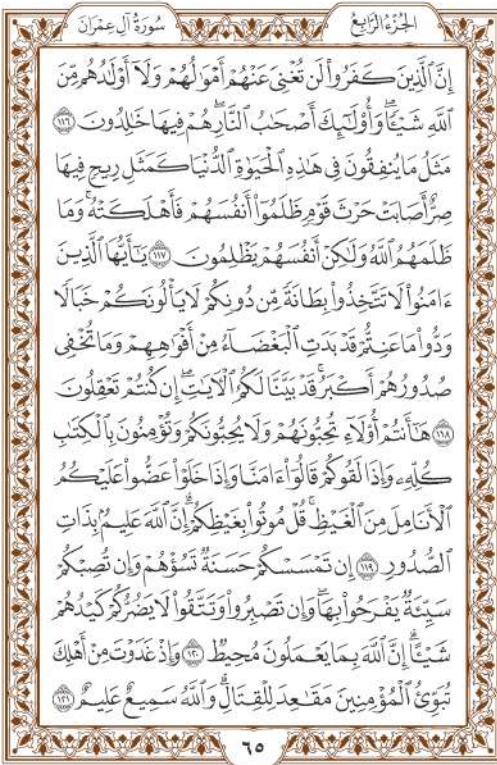 سُورَةُ آلِ عِمْرَانَ
الجُزْءُ الرَّابِعُ
إِنَّ ٱلَّذِينَ كَفَرُوا۟ لَن تُغْنِىَ عَنْهُمْ أَمْوَٰلُهُمْ وَلَآ أَوْلَٰدُهُم مِّنَ
ٱللَّهِ شَيْـًٔا ۖ وَأُو۟لَٰٓئِكَ أَصْحَٰبُ ٱلنَّارِ ۚ هُمْ فِيهَا خَٰلِدُونَ ۝١١٦
مَثَلُ مَا يُنفِقُونَ فِى هَٰذِهِ ٱلْحَيَوٰةِ ٱلدُّنْيَا كَمَثَلِ رِيحٍ فِيهَا
صِرٌّ أَصَابَتْ حَرْثَ قَوْمٍ ظَلَمُوٓا۟ أَنفُسَهُمْ فَأَهْلَكَتْهُ ۚ وَمَا
ظَلَمَهُمُ ٱللَّهُ وَلَٰكِنْ أَنفُسَهُمْ يَظْلِمُونَ ۝١١٧ يَٰٓأَيُّهَا ٱلَّذِينَ
ءَامَنُوا۟ لَا تَتَّخِذُوا۟ بِطَانَةً مِّن دُونِكُمْ لَا يَأْلُونَكُمْ خَبَالًا
وَدُّوا۟ مَا عَنِتُّمْ قَدْ بَدَتِ ٱلْبَغْضَآءُ مِنْ أَفْوَٰهِهِمْ وَمَا تُخْفِى
صُدُورُهُمْ أَكْبَرُ ۚ قَدْ بَيَّنَّا لَكُمُ ٱلْـَٔايَٰتِ ۖ إِن كُنتُمْ تَعْقِلُونَ
۝١١٨ هَٰٓأَنتُمْ أُو۟لَآءِ تُحِبُّونَهُمْ وَلَا يُحِبُّونَكُمْ وَتُؤْمِنُونَ بِٱلْكِتَٰبِ
كُلِّهِۦ وَإِذَا لَقُوكُمْ قَالُوٓا۟ ءَامَنَّا وَإِذَا خَلَوْا۟ عَضُّوا۟ عَلَيْكُمُ
ٱلْأَنَامِلَ مِنَ ٱلْغَيْظِ ۚ قُلْ مُوتُوا۟ بِغَيْظِكُمْ ۗ إِنَّ ٱللَّهَ عَلِيمٌۢ بِذَاتِ
ٱلصُّدُورِ ۝١١٩ إِن تَمْسَسْكُمْ حَسَنَةٌ تَسُؤْهُمْ وَإِن تُصِبْكُمْ
سَيِّئَةٌ يَفْرَحُوا۟ بِهَا ۖ وَإِن تَصْبِرُوا۟ وَتَتَّقُوا۟ لَا يَضُرُّكُمْ كَيْدُهُمْ
شَيْـًٔا ۗ إِنَّ ٱللَّهَ بِمَا يَعْمَلُونَ مُحِيطٌ ۝١٢٠ وَإِذْ غَدَوْتَ مِنْ أَهْلِكَ
تُبَوِّئُ ٱلْمُؤْمِنِينَ مَقَٰعِدَ لِلْقِتَالِ ۗ وَٱللَّهُ سَمِيعٌ عَلِيمٌ ۝١٢١
٦٥